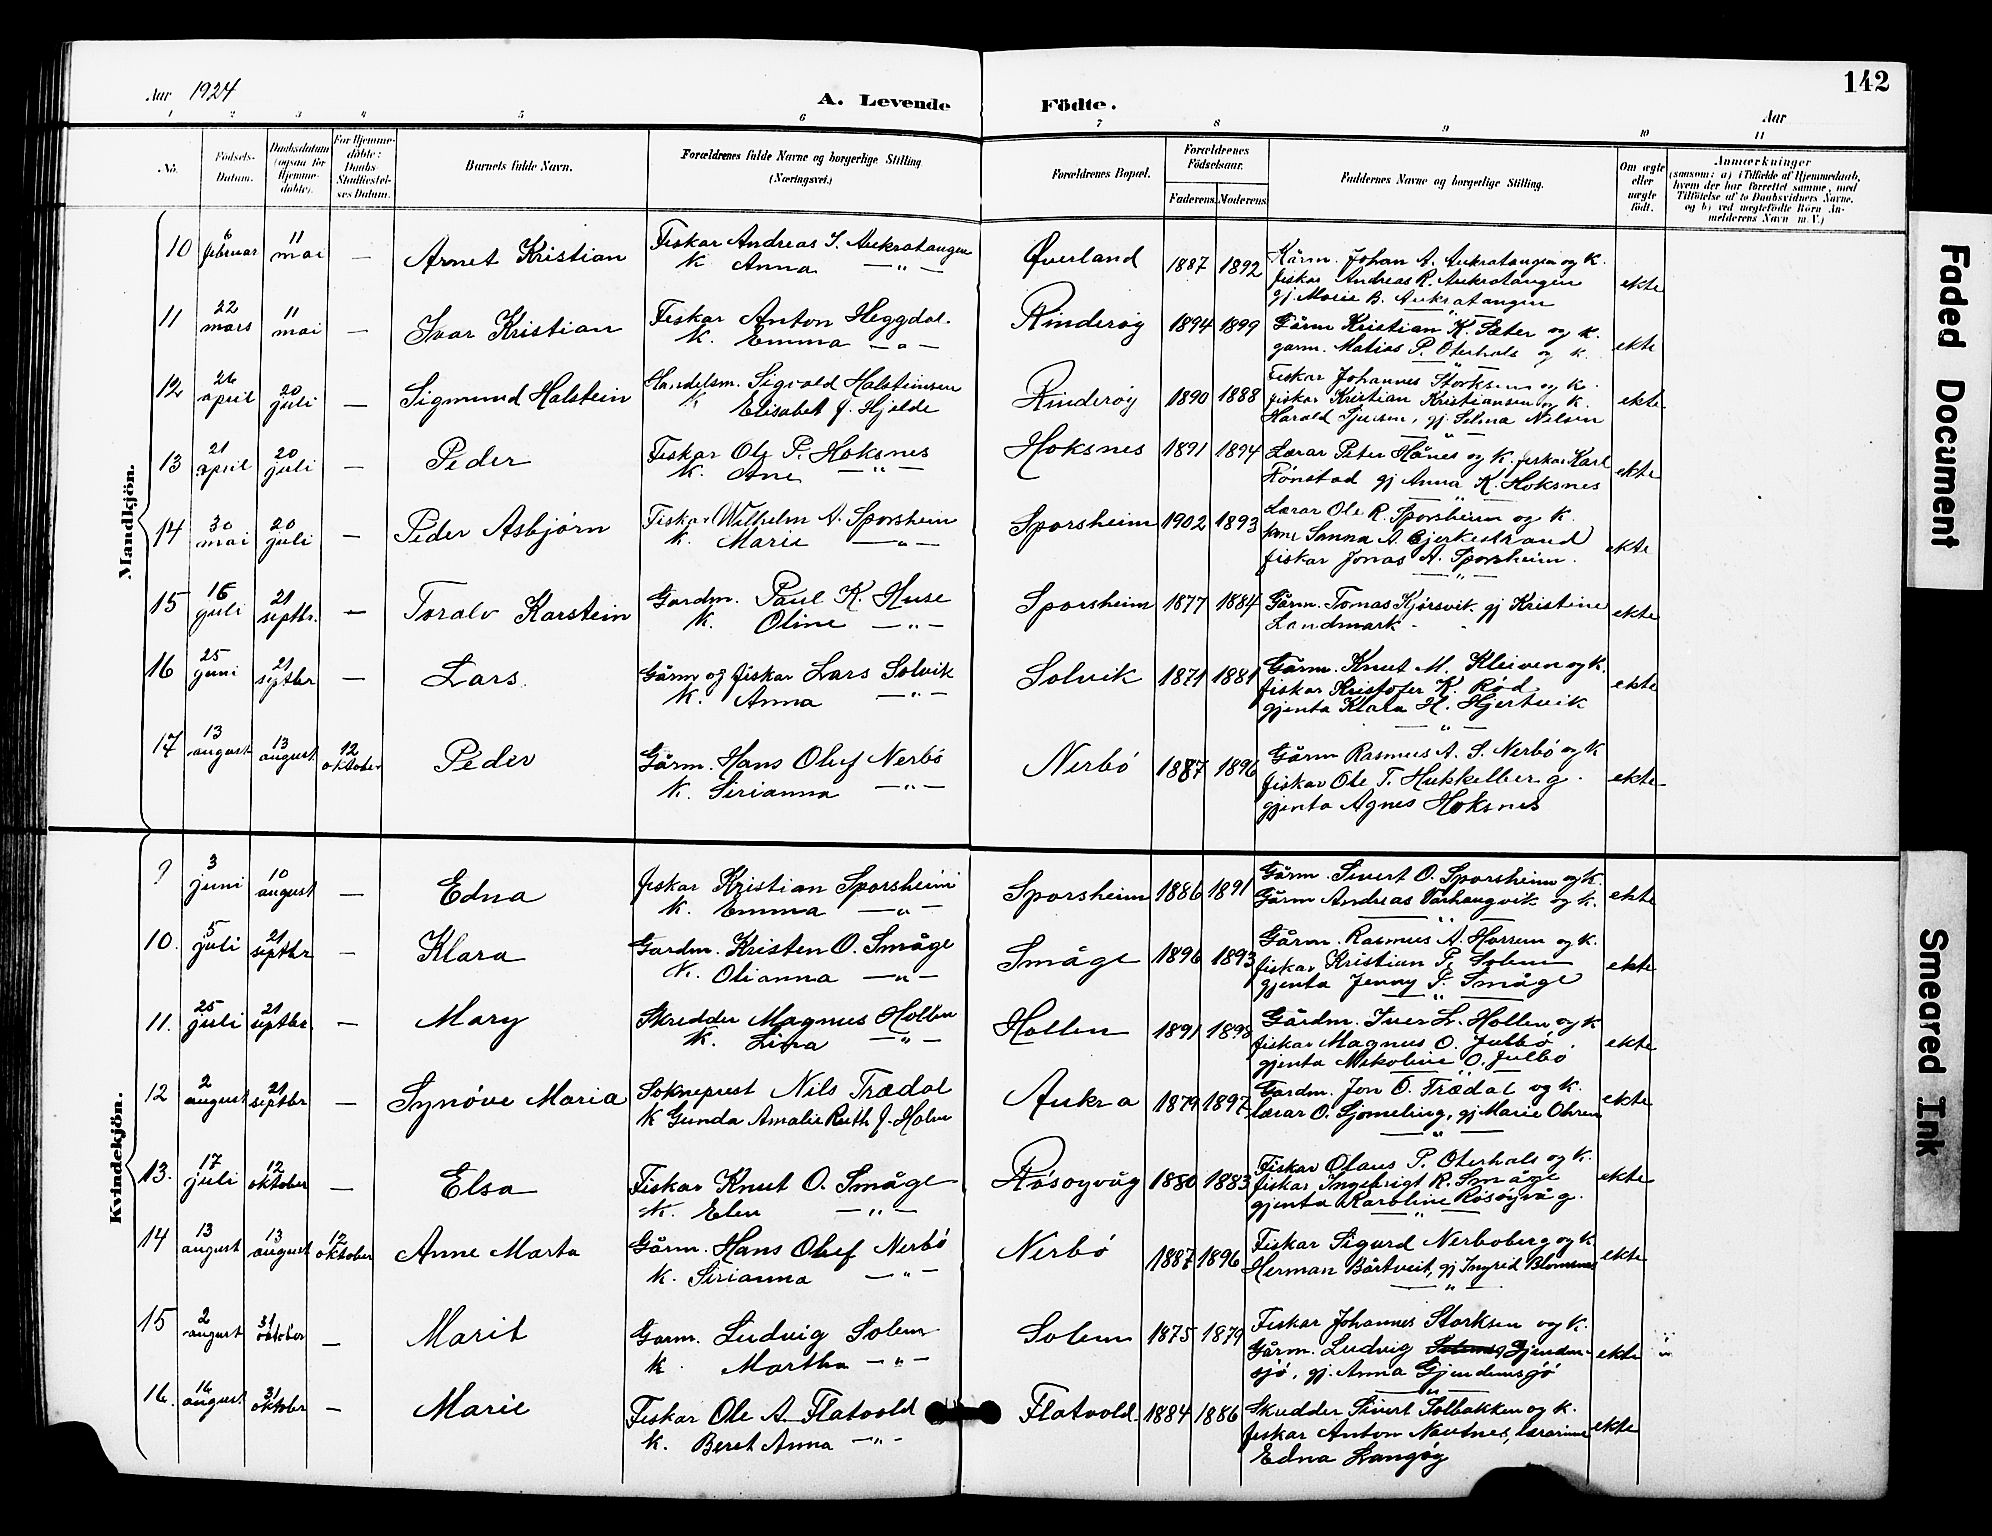 142
Aar 1924
A. Levende Födte.
Aar
1 2 3 4 5 6 7 8 9 10 11
No.
Födsels-Datum.
Daabsdatum (ogsaa for Hjemmedøbte).
For Hjemmedöbte: Daabs Stadfæstelses Datum.
Barnets fulde Navn.
Forældrenes fulde Navne og borgerlige Stilling (Næringsvei.)
Forældrenes Bopæl.
Forældrenes Födselsaar.
Faderens. Moderens.
Faddernes Navne og borgerlige Stilling.
Om ægte eller uægte födt.
Anmærkninger
(saasom: a) i Tilfælde af Hjemmedaab, hvem der har forrettet samme, med Tilföielse af to Daabsvidners Navne, og b) ved uægtefödte Börn Anmelderens Navn m. V.)
Mandkjön.
10 6 februar 11 mai — Arnet Kristian Fiskar Andreas J. Aukratangen Øverland 1887 1892 Kårm. Johan A. Aukratangen og K. ekte
K. Anna —"— fiskar Andreas R. Aukratangen
gj. Marie B. Aukratangen
11 22 mars 11 mai — Ivar Kristian Fiskar Anton Heggdal. Rinderøy 1894 1899 Gårm Kristian K. Sæter og K. ekte
K. Emma —"— garm. Matias P. Oterhals og K.
12 26 april 20 juli — Sigmund Halstein Handelsm. Sigvald Halsteinsen Rinderøy 1890 1888 Fiskar Johannes Storksen og K. ekte
K Elisabet f. Hjelde fiskar Kristian Kristiansen og K.
Harald Sjursen, gj. Selma Nilsen
13 21 april 20 juli — Peder Fiskar Ole P. Hoksnes Hoksnes 1891 1894 Lærar Peter Hånes og K. fiskar Karl ekte
K. Ane —"— Rønstad gj Anna K. Hoksnes
14 30 mai 20 juli — Peder Asbjørn Fiskar Wilhelm A. Sporsheim Sporsheim 1902 1893 Lærar Ole R. Sporsheim og K. ekte
K. Marie —"— Sanna A. Bjerkestrand
fiskar Jonas A. Sporsheim.
15 16 juli 21 septbr. — Toralv Karstein Gardm. Paul K. Huse Sporsheim 1877 1884 Gårm. Tomas Kjørsvik gj Kristine ekte
K. Oline —"— Landmark
16 25 juni 21 septbr — Lars Gårm og fiskar Lars Solvik Solvik 1871 1881 Gårm. Knut M. Kleiven og K. ekte
K. Anna —"— fiskar Kristofer K. Rød
gjenta Klara H. Hjertvik
17 13 august 13 august 12 oktober Peder Gårm. Hans Oluf Nerbö Nerbö 1887 1896 Gårm Rasmus A. S. Nerbö og K ekte
K. Sirianna —"— fiskar Ole T. Hukkelberg.
gjenta Agnes Hoksnes
Kvindekjön.
9 3 juni 10 august — Edna fiskar Kristian Sporsheim Sporsheim 1886 1891 Gårm. Sivert O. Sporsheim og K. ekte
K. Emma —"— Gårm Andreas Varhaugvik og K.
10. 5 juli 21 septbr — Klara Gardm. Kristen O. Småge Småge 1896 1893 Gårm. Rasmus A. Horrem og K. ekte
K. Olianna —"— fiskar Kristian P. Solem
gjenta Jenny P. Småge
11. 25 juli 21 septbr. — Mary Skredder Magnus Hollen Hollen 1891 1898 Gårdm. Iver L. Hollen og K ekte
K. Lina —"— fiskar Magnus O. Julbö.
gjenta Nikoline O. Julbö
12 2 august 21 septbr — Synöve Maria Sokneprest Nils Trædal Aukra 1879 1897 Gardm. Jon O. Trædal og K. ekte
K Gunda Amalie Ruth f. Holm lærar O. Sjømeling, gj Marie Ohren
13. 17 juli 12 oktober — Elsa Fiskar Knut O. Småge Røsøyvåg 1880 1883 Fiskar Olaus P. Oterhals og K. ekte
K. Elen —"— fiskar Ingebrigt R. Småge
gjenta Karoline Røsøyvåg.
14 13 august 13 august 12 oktober Anne Marta Gårm. Hans Oluf Nerbö Nerbö 1887 1896 Fiskar Sigurd Nerboberg og K ekte
K. Sirianna —"— Herman Bårtveit, gj Ingrid Blomsnes
15 2 august 31 oktober — Marit Garm. Ludvig Solem Solem 1875 1879 Fiskar Johannes Storksen og K. ekte
K. Martha —"— Gårm. Ludvig Gjendem-
sjö, gj. Anna Gjendemsjö
16. 16 august 31 oktober — Marie Fiskar Ole A. Flatvold Flatvold 1884 1886 Skredder Sivert Solbakken og K. ekte
K. Beret Anna —"— fiskar Anton Nautnes, lærarinne
Edna Langöy
Faded Document
Smeared Ink